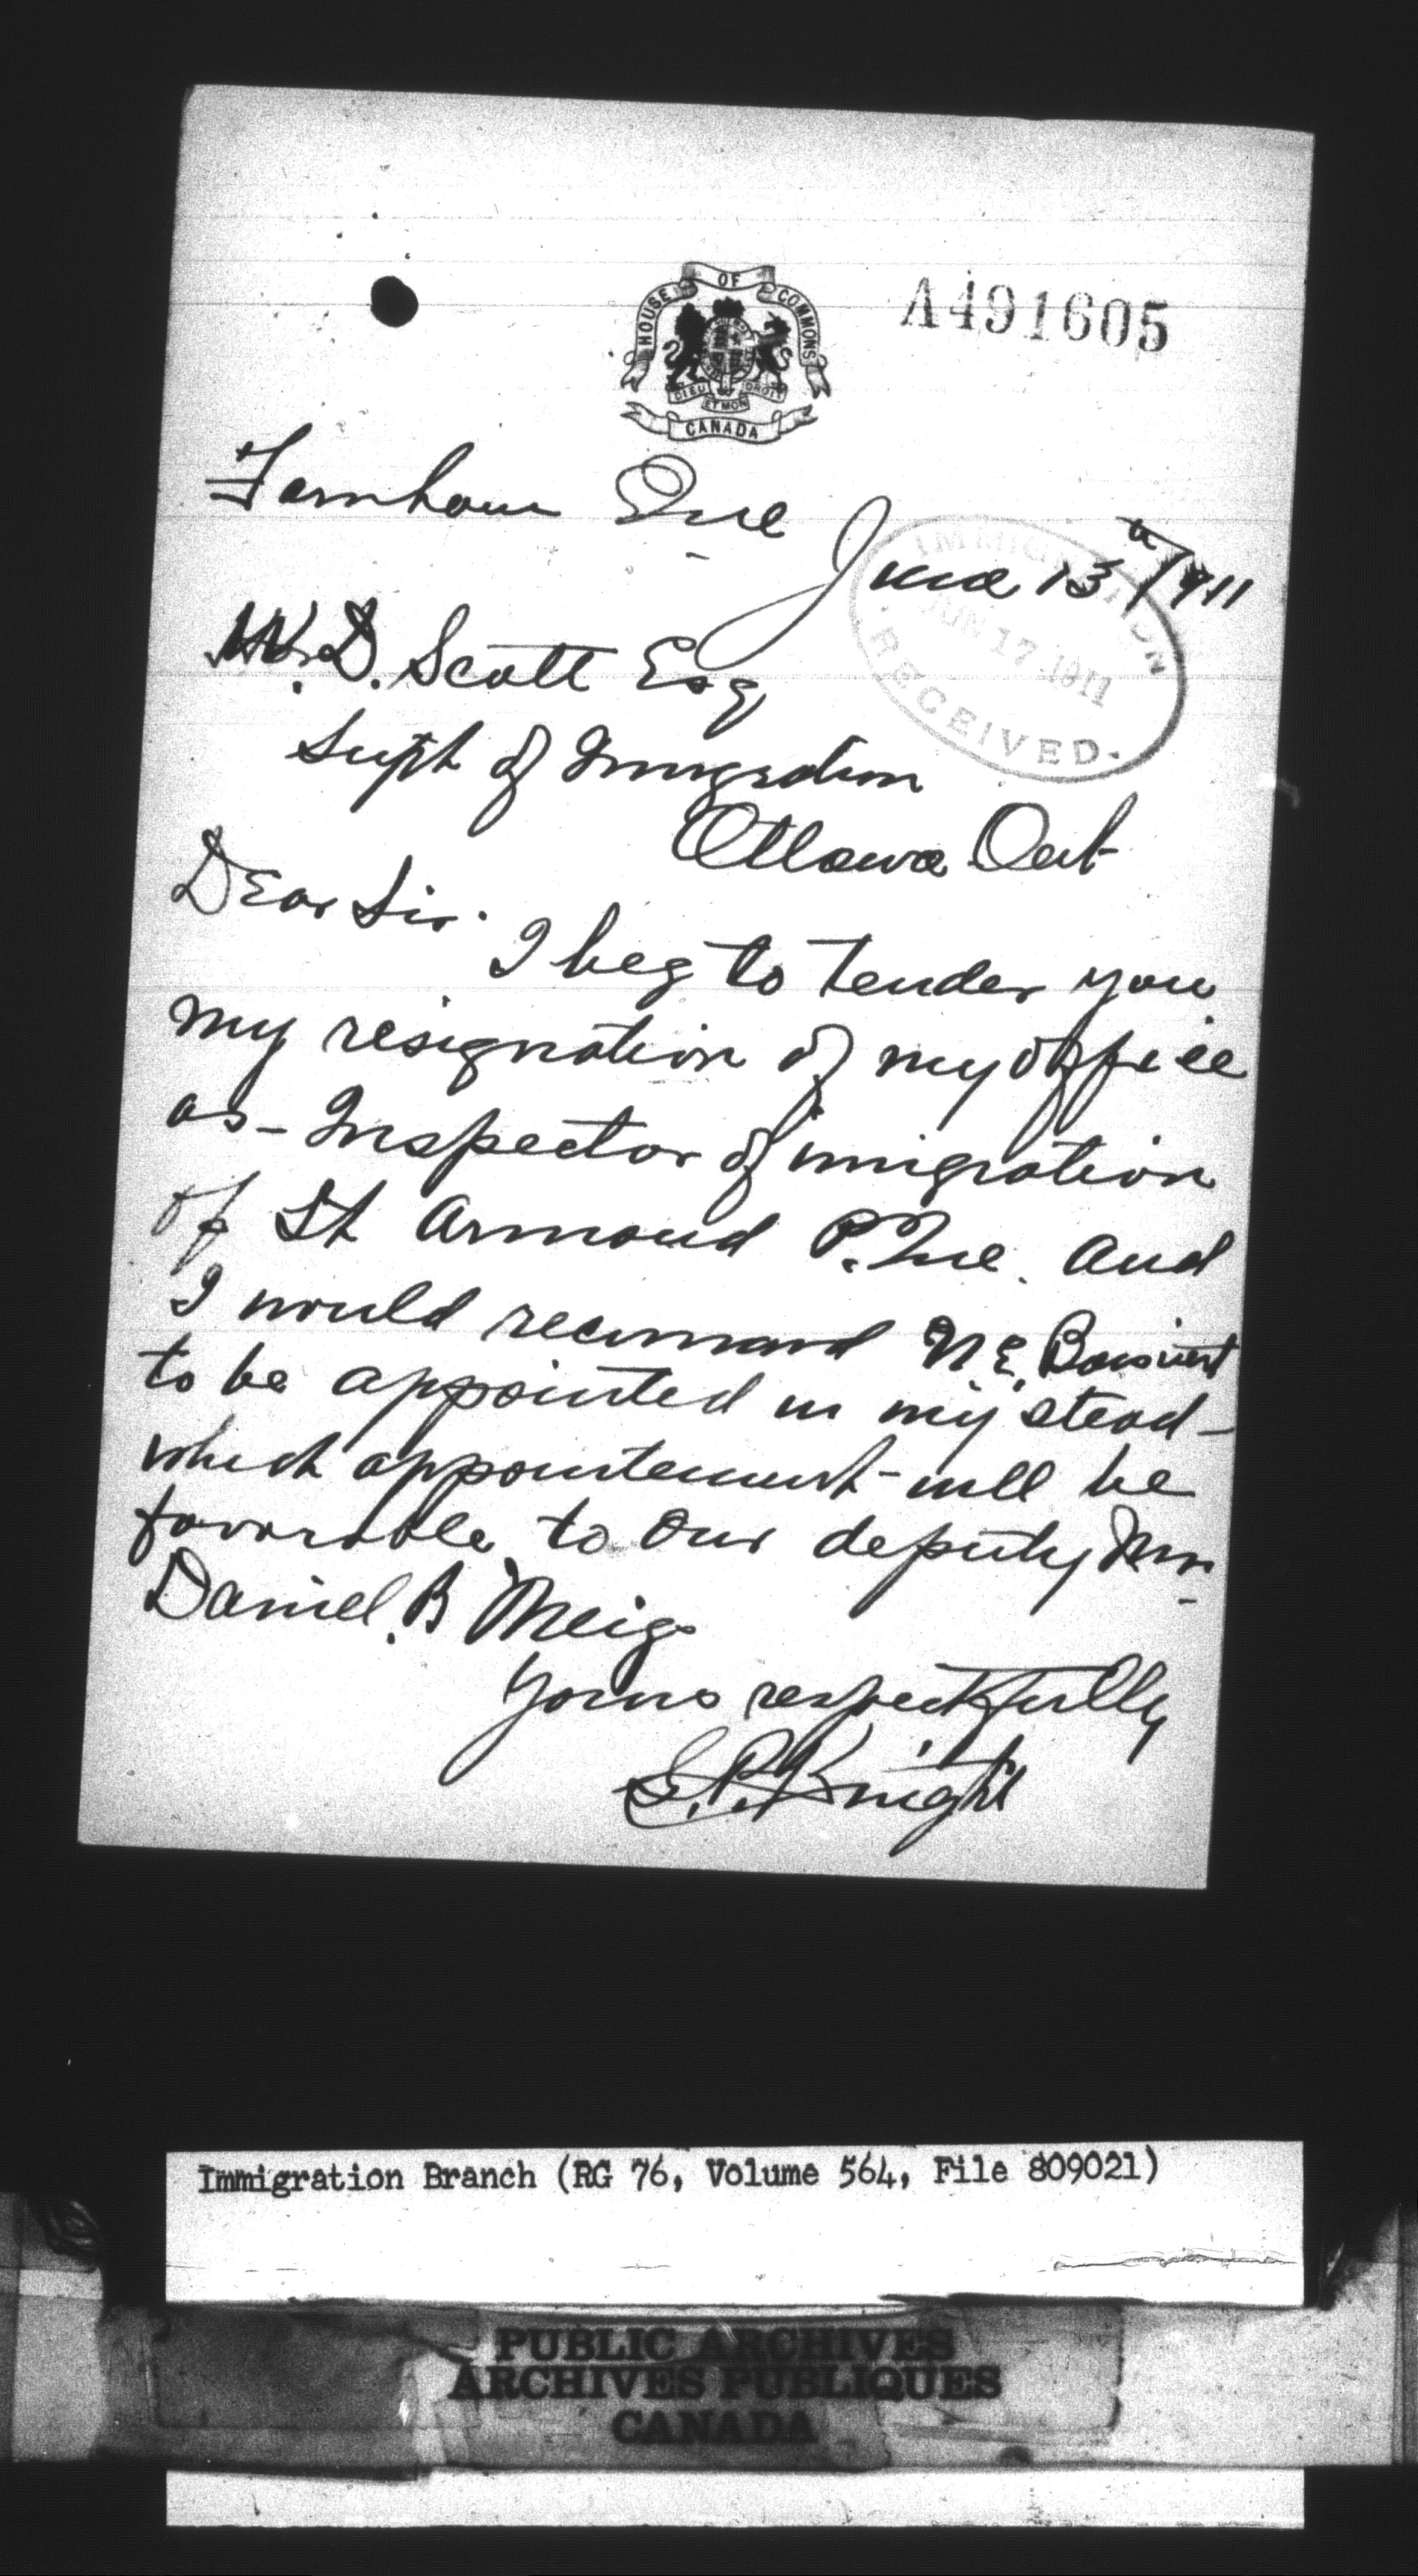 HOUSE OF COMMONS
DIEU ET MON DROIT
CANADA
A491605
Farnham Que
June 13th/1911
IMMIGRATION
JUN 17 1911
RECEIVED.
W.D. Scott Esq
Supt of Imigration
Ottawa Ont
Dear Sir.
I beg to tender you
my resignation of my office
as- Inspector of imigration
of St Armand P. Que. and
I would recommand N.E. Boisvert
to be appointed in my stead-
which appointement- will be
favorable to our deputy Mr.
Daniel. B Meigs
Yours respectfully
S.P. Knight
Immigration Branch (RG 76, Volume 564, File 809021)
PUBLIC ARCHIVES
ARCHIVES PUBLIQUES
CANADA